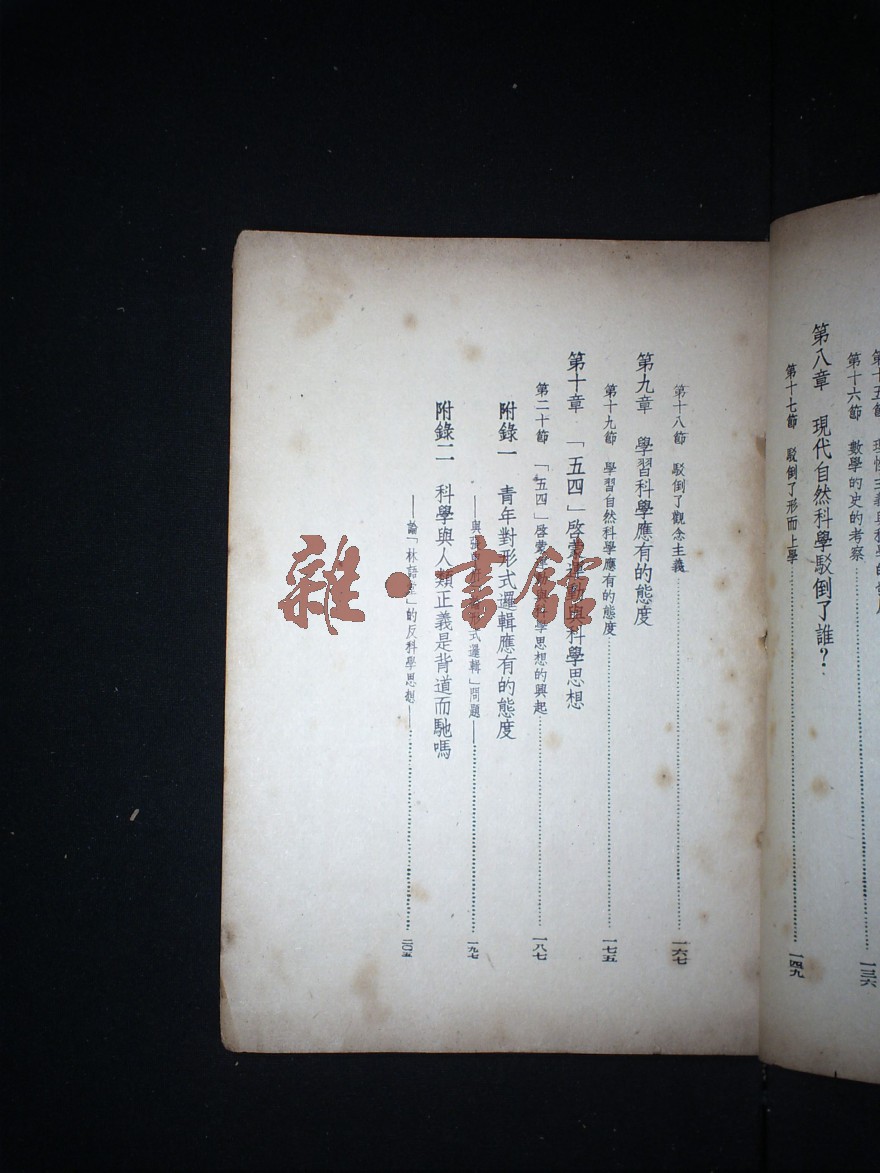 第十六節　數學的史的考察………一三六
第八章　現代自然科學駁倒了誰？
第十七節　駁倒了形而上學………一四九
第十八節　駁倒了觀念主義………一六七
第九章　學習科學應有的態度
第十九節　學習自然科學應有的態度………一七五
第十章　「五四」啓蒙運動與科學思想
第二十節　「五四」啓蒙運動與科學思想的興起………一八七
附錄一　青年對形式邏輯應有的態度
——與張 式邏輯」問題——………一九七
附錄二　科學與人類正義是背道而馳嗎
——論「林語堂」的反科學思想——………二〇五
雜·書館